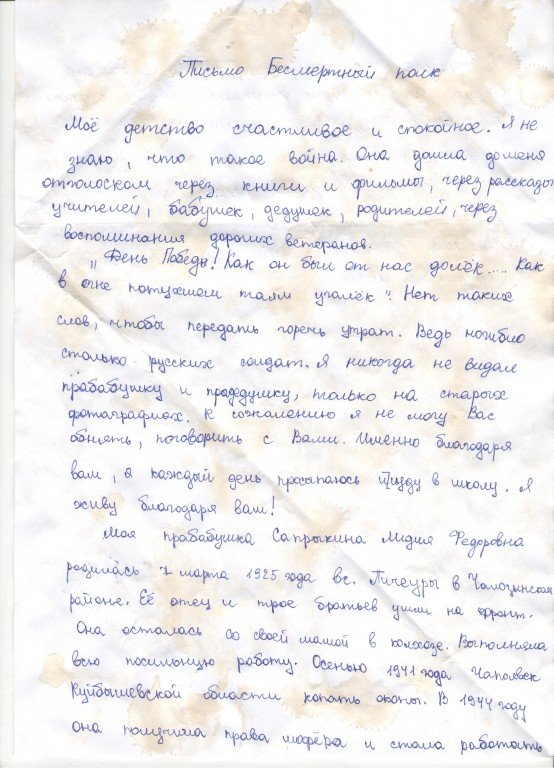 Письмо Бесмертный полк
Моё детство счастливое и спокойное. Я не
знаю, что такое война. Она дошла доменя
отголоском через книги и фильмы, через рассказы
учителей, бабушек, дедушек, родителей, через
воспоминания дорогих ветеранов.
„День Победы! Как он был от нас далёк.... Как
в огне потухшем таял уголёк". Нет таких
слов, чтобы передать горечь утрат. Ведь погибло
столько русских солдат. Я никогда не видал
прабабушку и прадедушку, только на старых
фотографиях. К сожалению я не могу Вас
обнять, поговорить с Вами. Именно благодаря
вам, я каждый день просыпаюсь Иду в школу. Я
живу благодаря вам!
Моя прабабушка Сапрыкина Лидия Федоровна
родилась 7 марта 1925 года вс. Пичеуры в
районе. Её отец и трое братьев ушли на фронт.
Она осталась со своей мамой в колхозе. Выполняла
всю посильную работу. Осенью 1941 года Чапаевск
Куйбышевской области копать окопы. В 1944 году
она получила права шофёра и стала работать